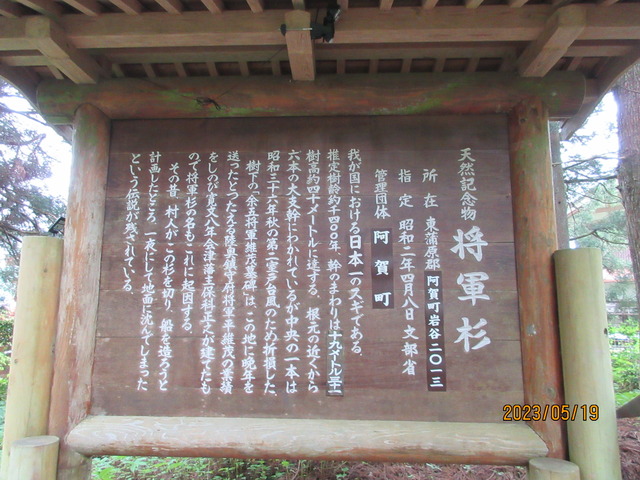 天然記念物 将軍杉
所在 東蒲原郡阿賀町岩谷二〇一三
指定 昭和二年四月八日 文部省
管理団体 阿賀町
我が国における日本一のスギである。
推定樹齢約千四〇〇年、幹のまわりは十九メートル三十一
樹高約四十メートルに達する。根元の近くから
六本の大支幹にわかれているが中央の一本は
昭和三十六年秋の第二室戸台風のため折損した。
樹下の「余五将軍維茂墓碑」は、この地に晩年を
送ったとつたえる陸奥鎮守府将軍平維茂の業績
をしのび寛文八年会津藩主保科正之が建てたも
ので将軍杉の名もこれに起因する。
その昔、村人がこの杉を切り、船を造ろうと
計画したところ、一夜にして地面に沈んでしまった
という伝説が残されている。
2023/05/19